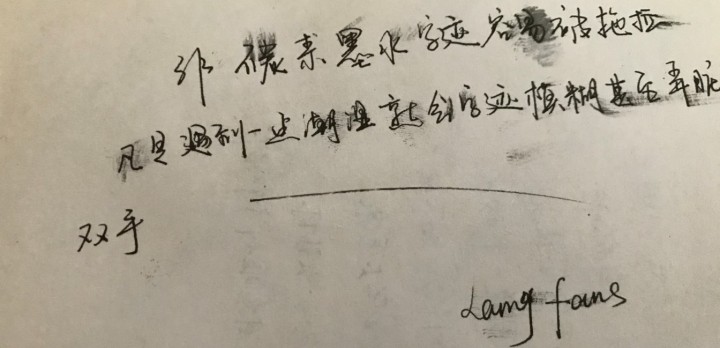 非碳素墨水字迹容易被拖拉
凡是遇到一点潮湿就会字迹模糊甚至弄脏
双手
Lamy fans